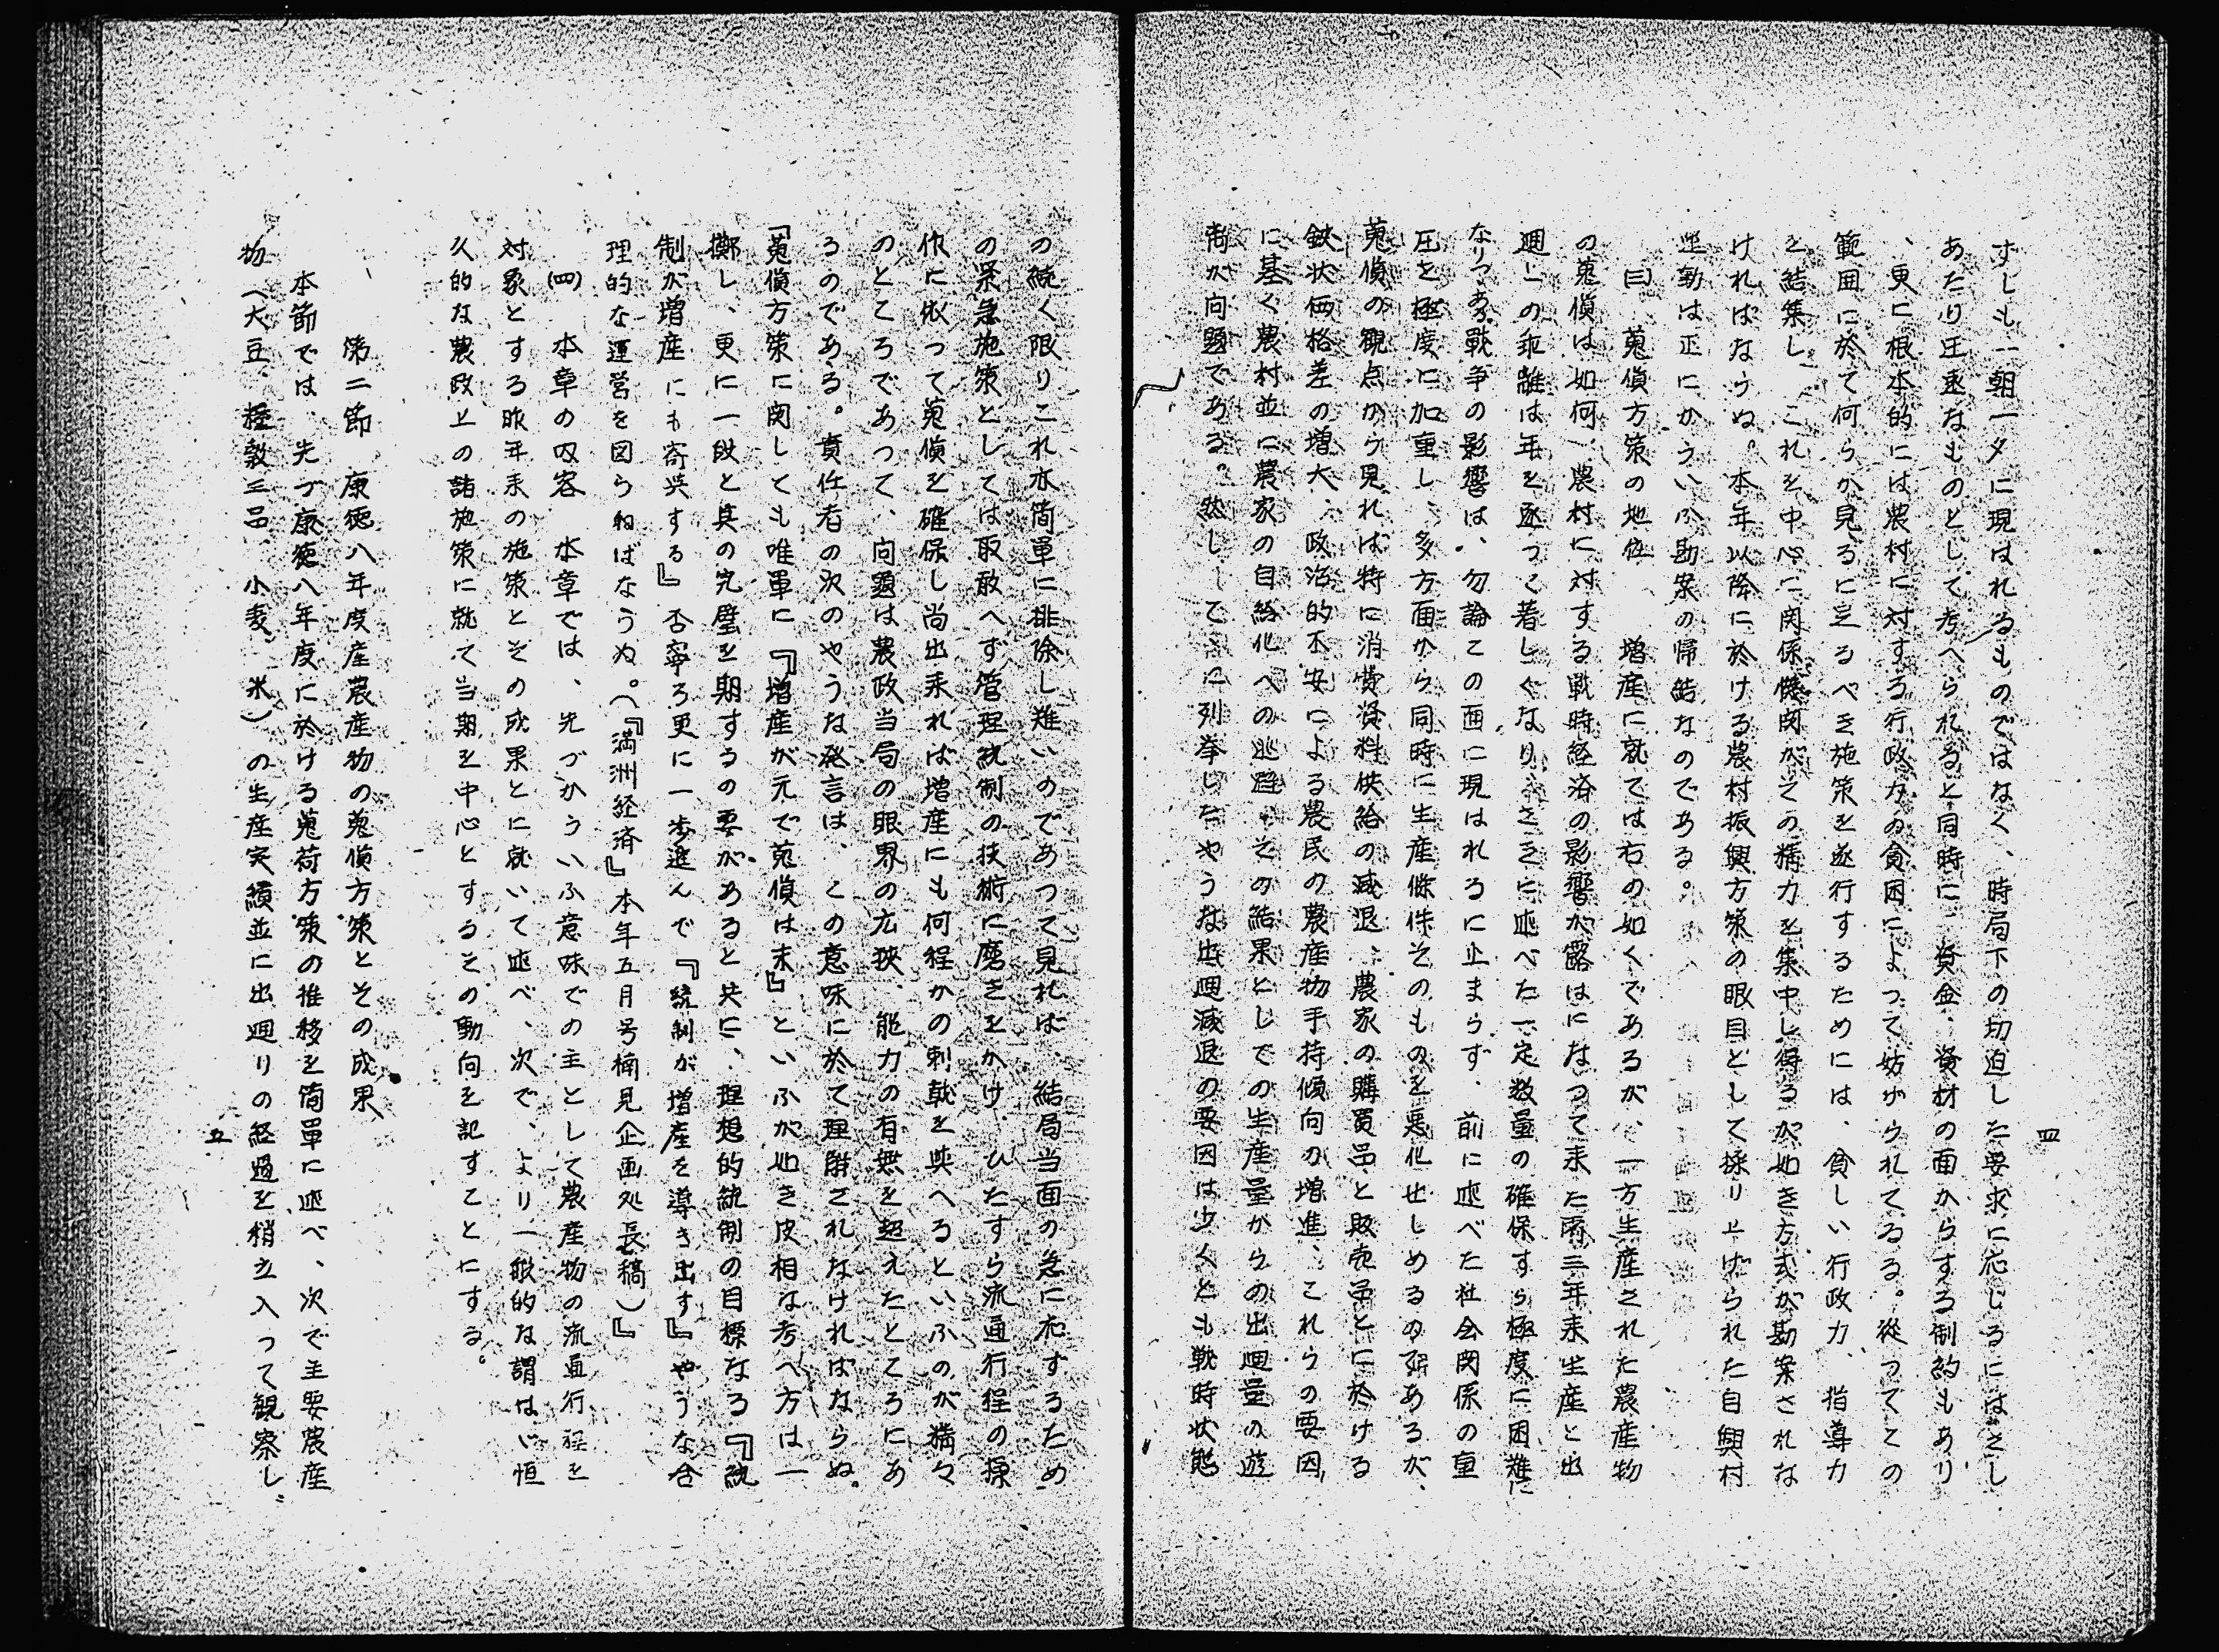 四
すしも一朝一夕に現はれるものではなく、時局下の切迫した要求に応じるにはさし
あたり迂遠なものとして考へられると同時に、資金、資材の面からする制約もあり
、更に根本的には農村に対する行政力の貧困によつて妨げられてゐる。従つてこの
範囲に於て何らか見るに足るべき施策を遂行するためには、貧しい行政力、指導力
を結集し、これを中心に関係機関がその精力を集中し得るが如き方式が勘案されな
ければならぬ。本年以降に於ける農村振興方策の眼目として採り上げられた自興村
運動は正にかういふ勘案の帰結なのである。
(三) 蒐倩方策の地位 増産に就ては右の如くであるが、一方生産された農産物
の蒐倩は如何、農村に対する戦時経済の影響が露はになつて来た両三年来生産と出
廻との乖離は年を逐つて著しくなり、さきに述べた一定数量の確保すら極度に困難に
なりつゝある戦争の影響は、勿論この面に現はれるに止まらず、前に述べた社会関係の重
圧を極度に加重し、多方面から同時に生産條件そのものを悪化せしめるのであるが、
蒐倩の観点から見れば特に消費資料供給の減退、農家の購買品と販売品とに於ける
鋏状価格差の増大、政治的不安による農民の農産物手持傾向の増進、これらの要因
に基く農村並に農家の自給化への逃避、その結果としての生産量からの出廻量の遊
離が問題である。然し こゝに列挙したやうな出廻減退の要因は少くとも戦時状態
の続く限りこれ亦簡単に排除し難いのであつて見れば、結局当面の急に応ずるため
の緊急施策としては取敢へず管理統制の技術に磨きをかけ、ひたすら流通行程の操
作に依つて蒐倩を確保し尚出来れば増産にも何程かの刺戟を与へるといふのが精々
のところであつて、問題は農政当局の眼界の広狭、能力の有無を超えたところにあ
るのである。責任者の次のやうな発言は、この意味に於て理解されなければならぬ。
「蒐倩方策に関しても唯単に『増産が元で蒐倩は末』といふが如き皮相な考へ方は一
擲し、更に一段と其の完璧を期するの要があると共に、理想的統制の目標なる『統
制が増産にも寄与する』否寧ろ更に一歩進んで『統制が増産を導き出す』やうな合
理的な運営を図らねばならぬ。(『満洲経済』本年五月号楠見企画処長稿)』
(四) 本章の内容 本章では、先づかういふ意味での主として農産物の流通行程を
対象とする昨年来の施策とその成果とに就いて述べ、次で、より一般的な謂はゞ恒
久的な農政上の諸施策に就て当期を中心とするその動向を記すことにする。
第二節 康徳八年度産農産物の蒐倩方策とその成果
本節では、先づ康徳八年度に於ける蒐荷方策の推移を簡単に述べ、次で主要農産
物(大豆、糧穀三品、小麦、米)の生産実績並に出廻りの経過を稍立入つて観察し
五